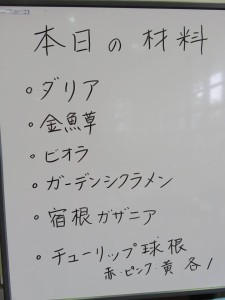 本日の材料
・ダリア
・金魚草
・ビオラ
・ガーデンシクラメン
・宿根ガザニア
・チューリップ球根
赤・ピンク・黄 各1